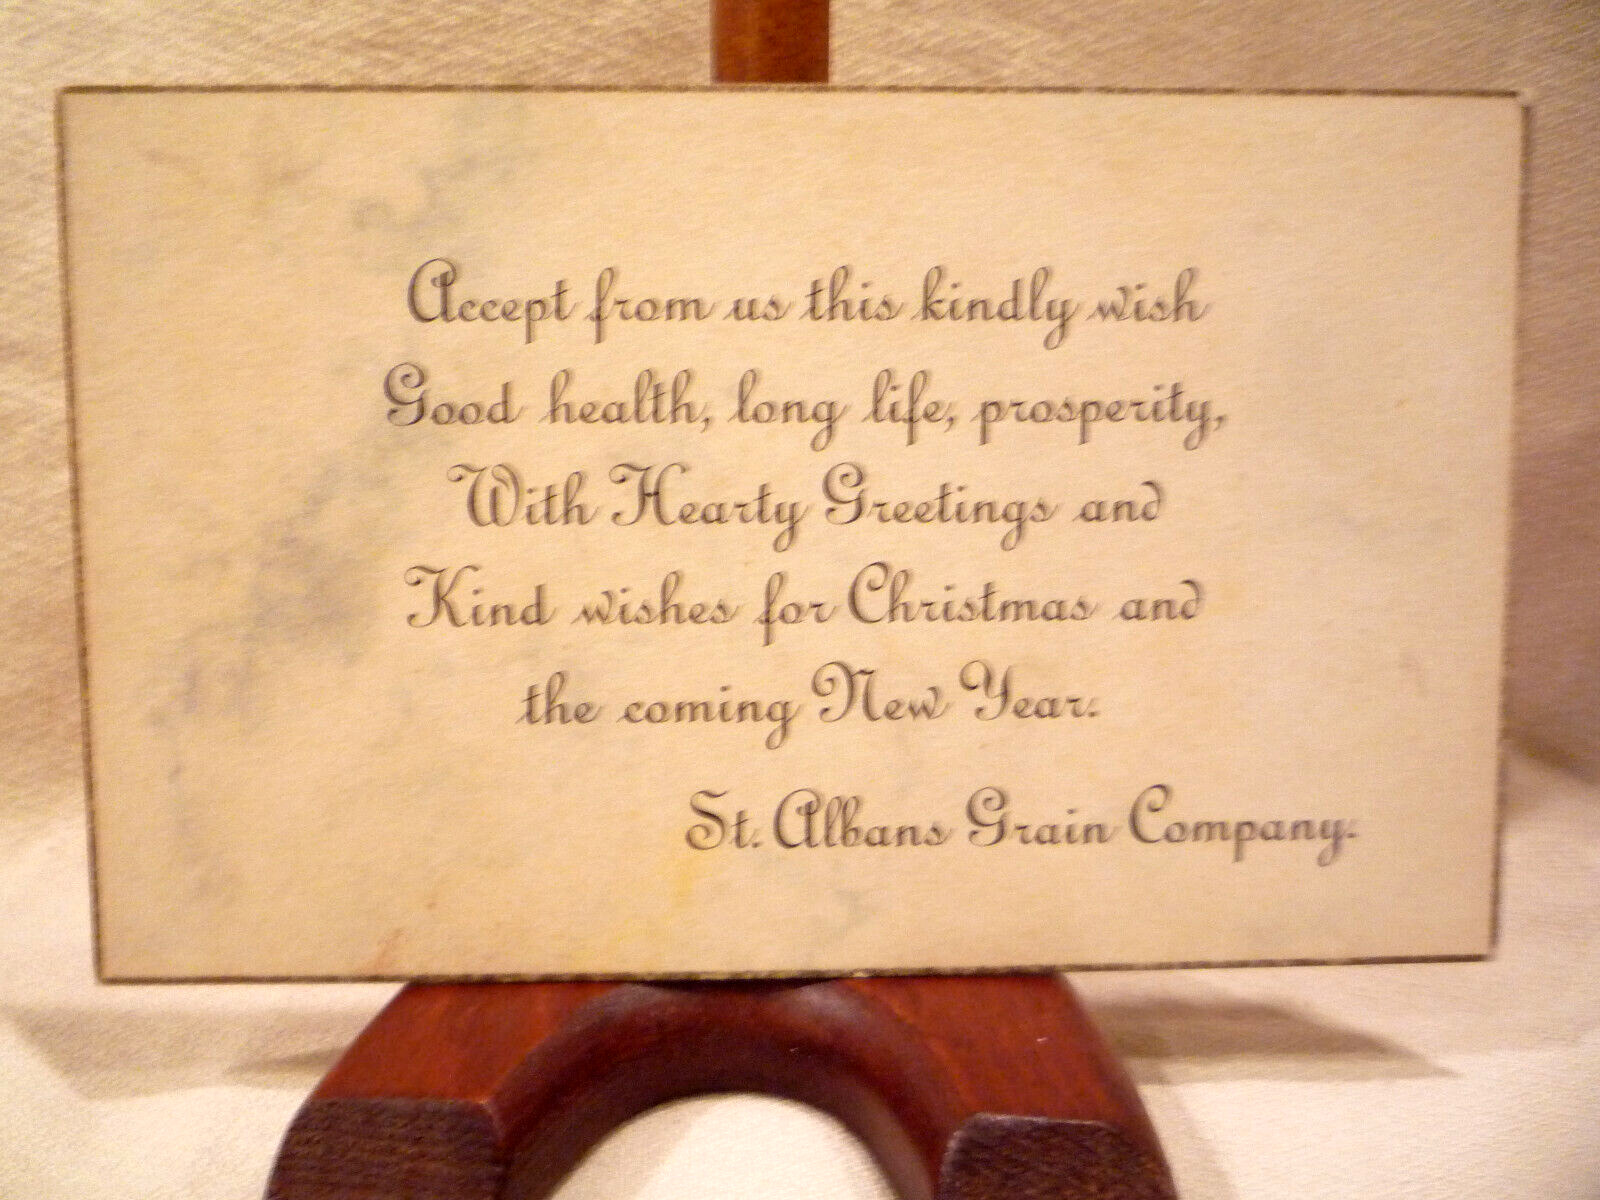 Accept from us this kindly wish
Good health, long life, prosperity,
With Hearty Greetings and
Kind wishes for Christmas and
the coming New Year.
St. Albans Grain Company.